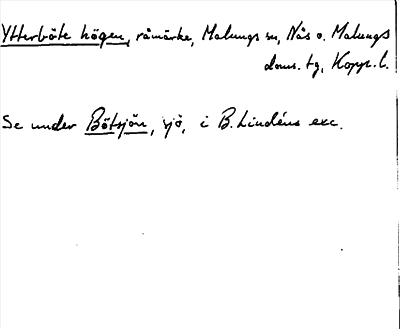 Ytterböte högen, råmärke, Malungs sn, Nås o. Malungs
doms. tg, Kopp. l.
Se under Bötsjön, sjö, i B. Lindéns exc.